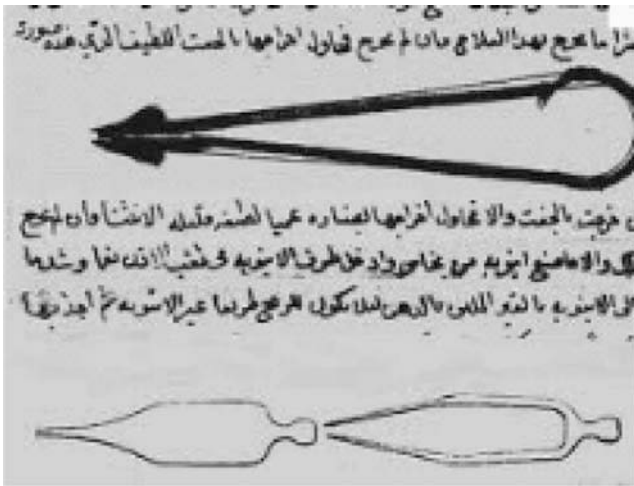 ما يخرج بهذا العلاج فان لم يخرج فحاول اخراجها بالجفت اللطيف الذي هذه صورته
خرجت بالجفت والا فحاول اخراجها بصناره عميا لطيفه قليله الانثنا فان لم يخرج
والا فاصنع انبوبه من نحاس وادخل طرف الانبوبه في ثقب الاذن نعما وشد ما
الانبوبه بالقير الملين بالدهن ليلا يكون للريح طريقا غير الانبوبه ثم اجذب